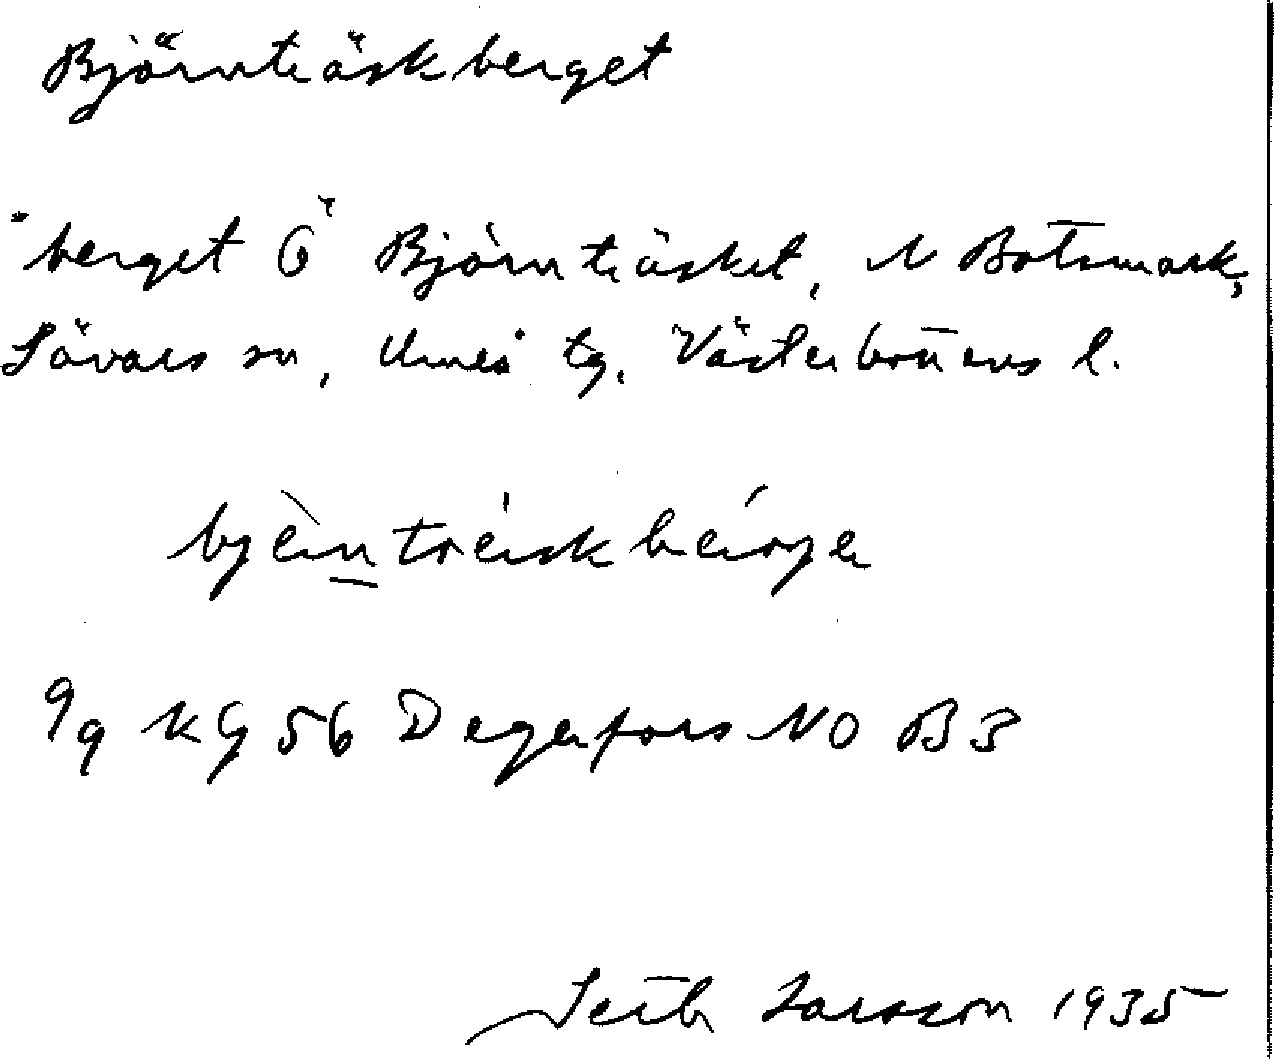 Björnträskberget
berget Ö Björnträsket, N Botsmark,
Sävars sn, Umeå tg. Västerbottens l.
9/9 KG 56 Degerfors NO B3
Seth Larsson 1935